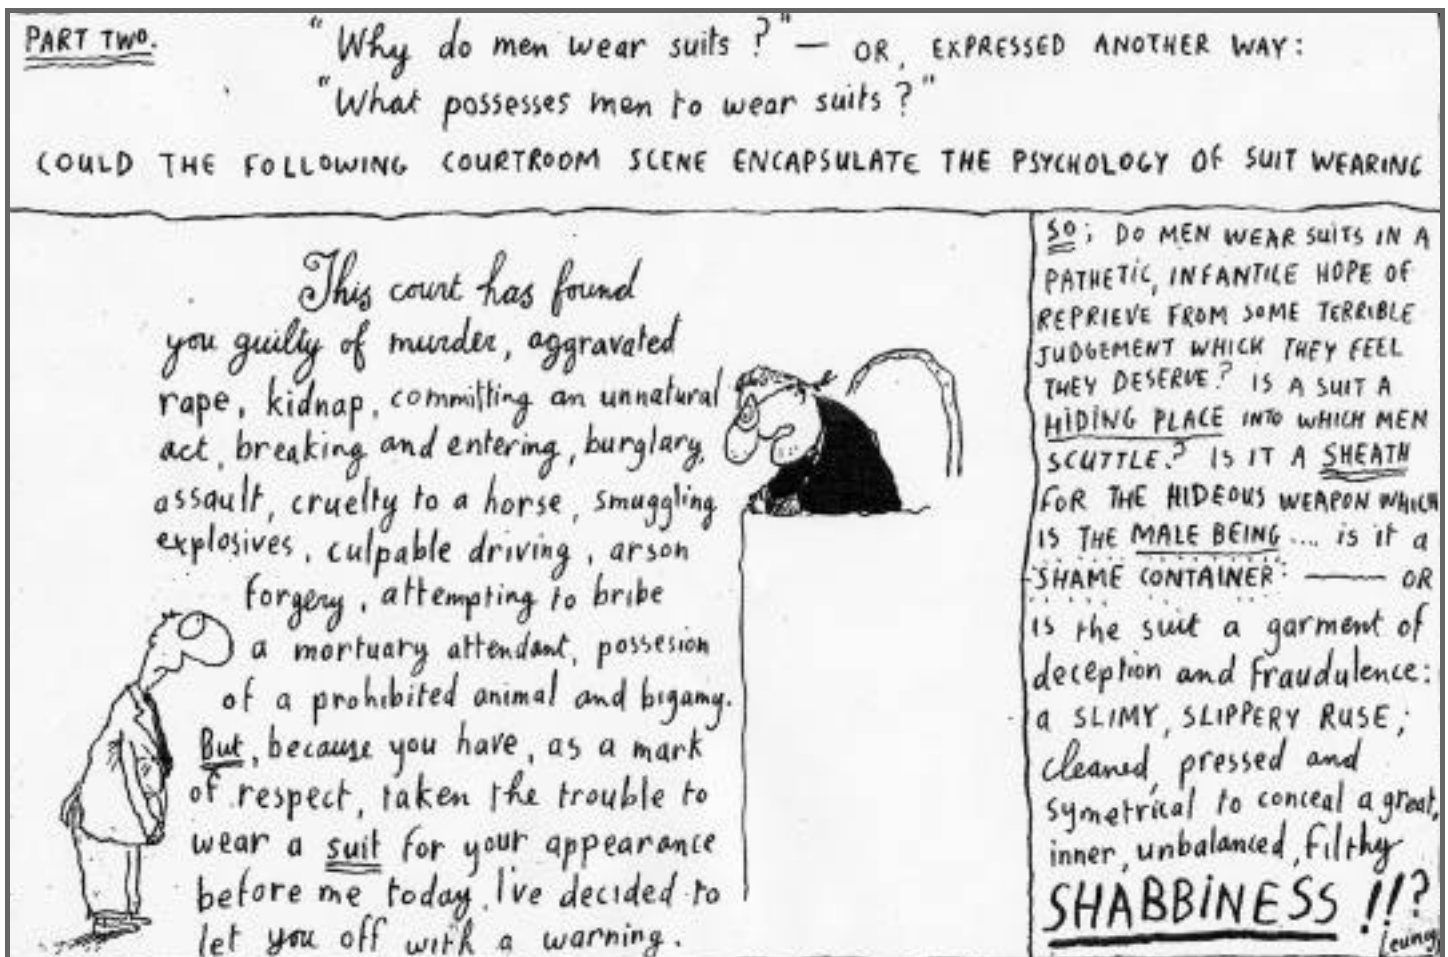 PART TWO.
"Why do men wear suits?" — OR, EXPRESSED ANOTHER WAY:
"What possesses men to wear suits?"
COULD THE FOLLOWING COURTROOM SCENE ENCAPSULATE THE PSYCHOLOGY OF SUIT WEARING
This court has found
you guilty of murder, aggravated
rape, kidnap, committing an unnatural
act, breaking and entering, burglary,
assault, cruelty to a horse, smuggling
explosives, culpable driving, arson
forgery, attempting to bribe
a mortuary attendant, possesion
of a prohibited animal and bigamy.
But, because you have, as a mark
of respect, taken the trouble to
wear a suit for your appearance
before me today, I've decided to
let you off with a warning.
SO; DO MEN WEAR SUITS IN A
PATHETIC, INFANTILE HOPE OF
REPRIEVE FROM SOME TERRIBLE
JUDGEMENT WHICH THEY FEEL
THEY DESERVE? IS A SUIT A
HIDING PLACE INTO WHICH MEN
SCUTTLE? IS IT A SHEATH
FOR THE HIDEOUS WEAPON WHICH
IS THE MALE BEING.... is it a
SHAME CONTAINER: — OR
is the suit a garment of
deception and fraudulence:
a SLIMY, SLIPPERY RUSE;
cleaned, pressed and
symetrical to conceal a great,
inner, unbalanced, filthy
SHABBINESS !!?
Leunig